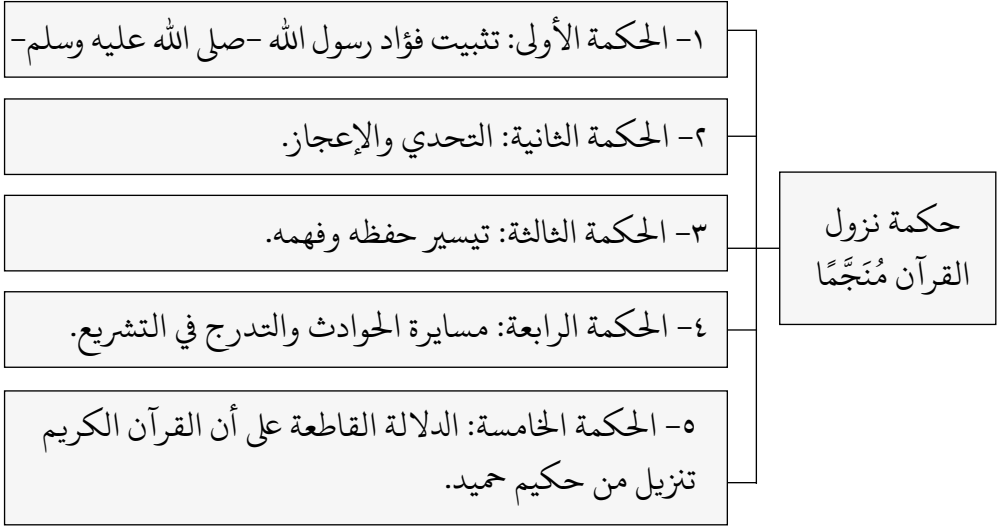 حكمة نزول
القرآن مُنَجَّمًا
١- الحكمة الأولى: تثبيت فؤاد رسول الله -صلى الله عليه وسلم-
٢- الحكمة الثانية: التحدي والإعجاز.
٣- الحكمة الثالثة: تيسير حفظه وفهمه.
٤- الحكمة الرابعة: مسايرة الحوادث والتدرج في التشريع.
٥- الحكمة الخامسة: الدلالة القاطعة على أن القرآن الكريم
تنزيل من حكيم حميد.